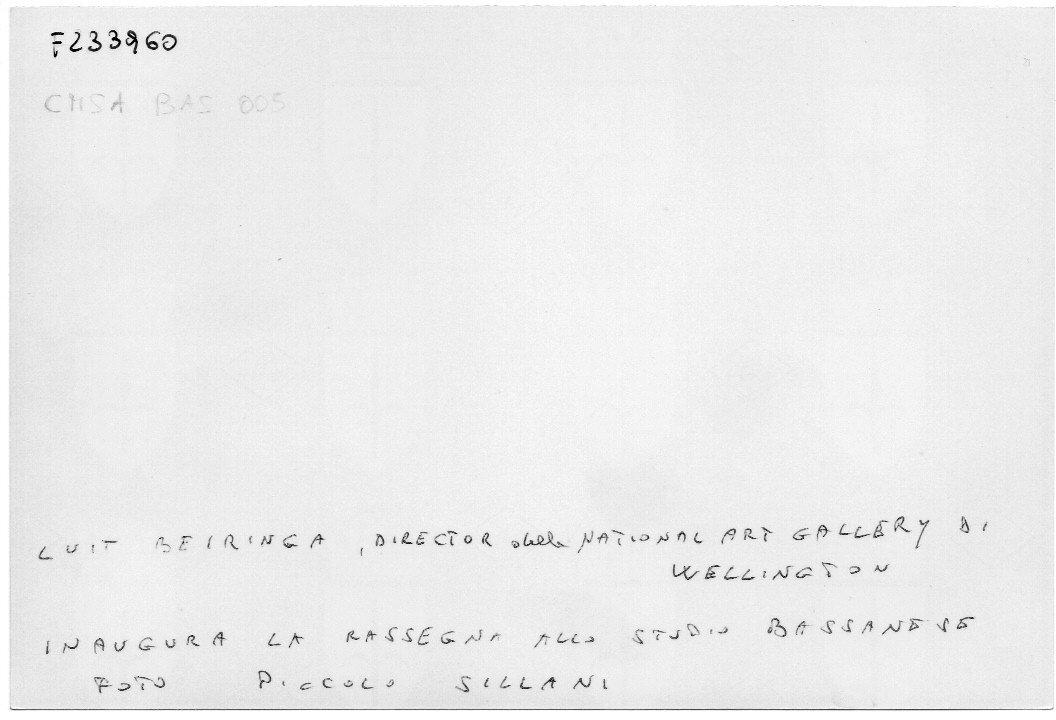 F233960
CMSA BAS 005
LUIT BEIRINGA, DIRECTOR della NATIONAL ART GALLERY DI
WELLINGTON
INAUGURA LA RASSEGNA ALLO STUDIO BASSANESE
FOTO PICCOLO SILLANI